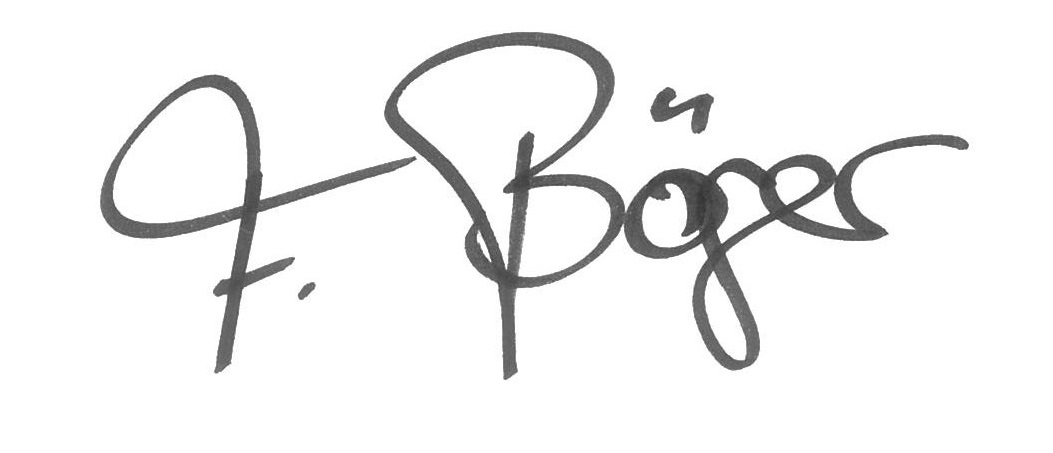 F. Böger